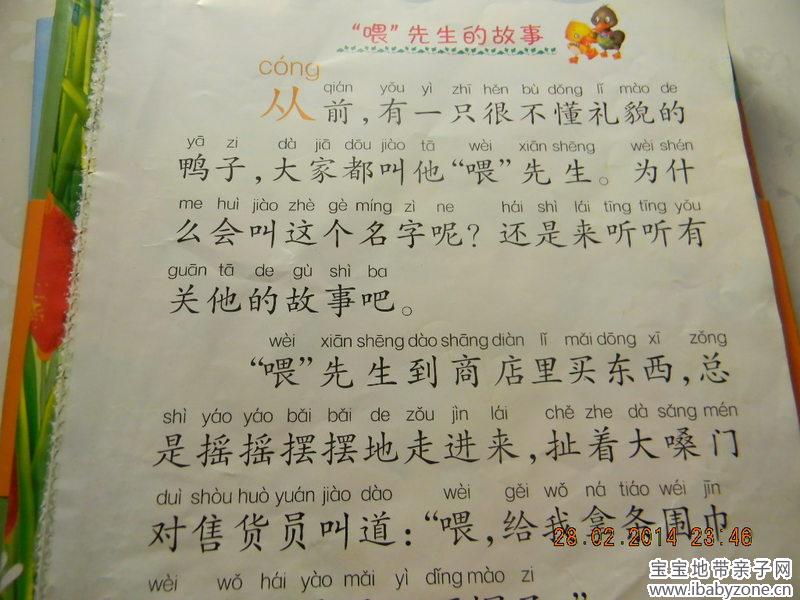 “喂”先生的故事
cóng
qián yǒu yì zhī hěn bù dǒng lǐ mào de
从前，有一只很不懂礼貌的
yā zi dà jiā dōu jiào tā wèi xiān shēng wèi shén
鸭子，大家都叫他“喂”先生。为什
me huì jiào zhè gè míng zì ne hái shì lái tīng tīng yǒu
么会叫这个名字呢？还是来听听有
guān tā de gù shì ba
关他的故事吧。
wèi xiān shēng dào shāng diàn lǐ mǎi dōng xī zǒng
“喂”先生到商店里买东西，总
shì yáo yáo bǎi bǎi de zǒu jìn lái chě zhe dà sǎng mén
是摇摇摆摆地走进来，扯着大嗓门
duì shòu huò yuán jiào dào wèi gěi wǒ ná tiáo wéi jīn
对售货员叫道：“喂，给我拿条围巾
28.02.2014 23:46
wèi wǒ hái yào mǎi yì dǐng mào zi
宝宝地带亲子网
www.ibabyzone.cn